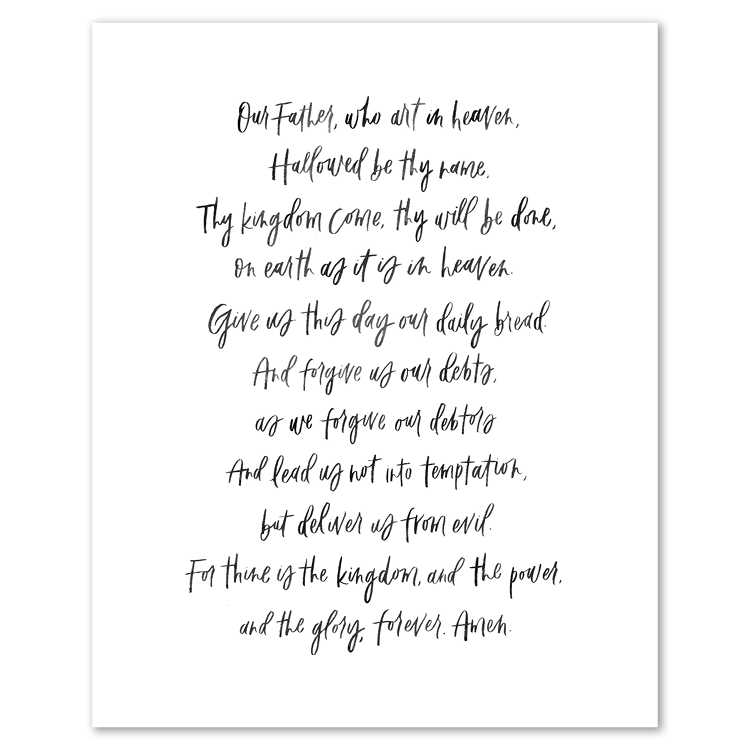 Our Father, who art in heaven,
Hallowed be thy name.
Thy kingdom come, thy will be done,
on earth as it is in heaven.
Give us this day our daily bread.
And forgive us our debts,
as we forgive our debtors
And lead us not into temptation,
but deliver us from evil.
For thine is the kingdom, and the power,
and the glory, forever. Amen.